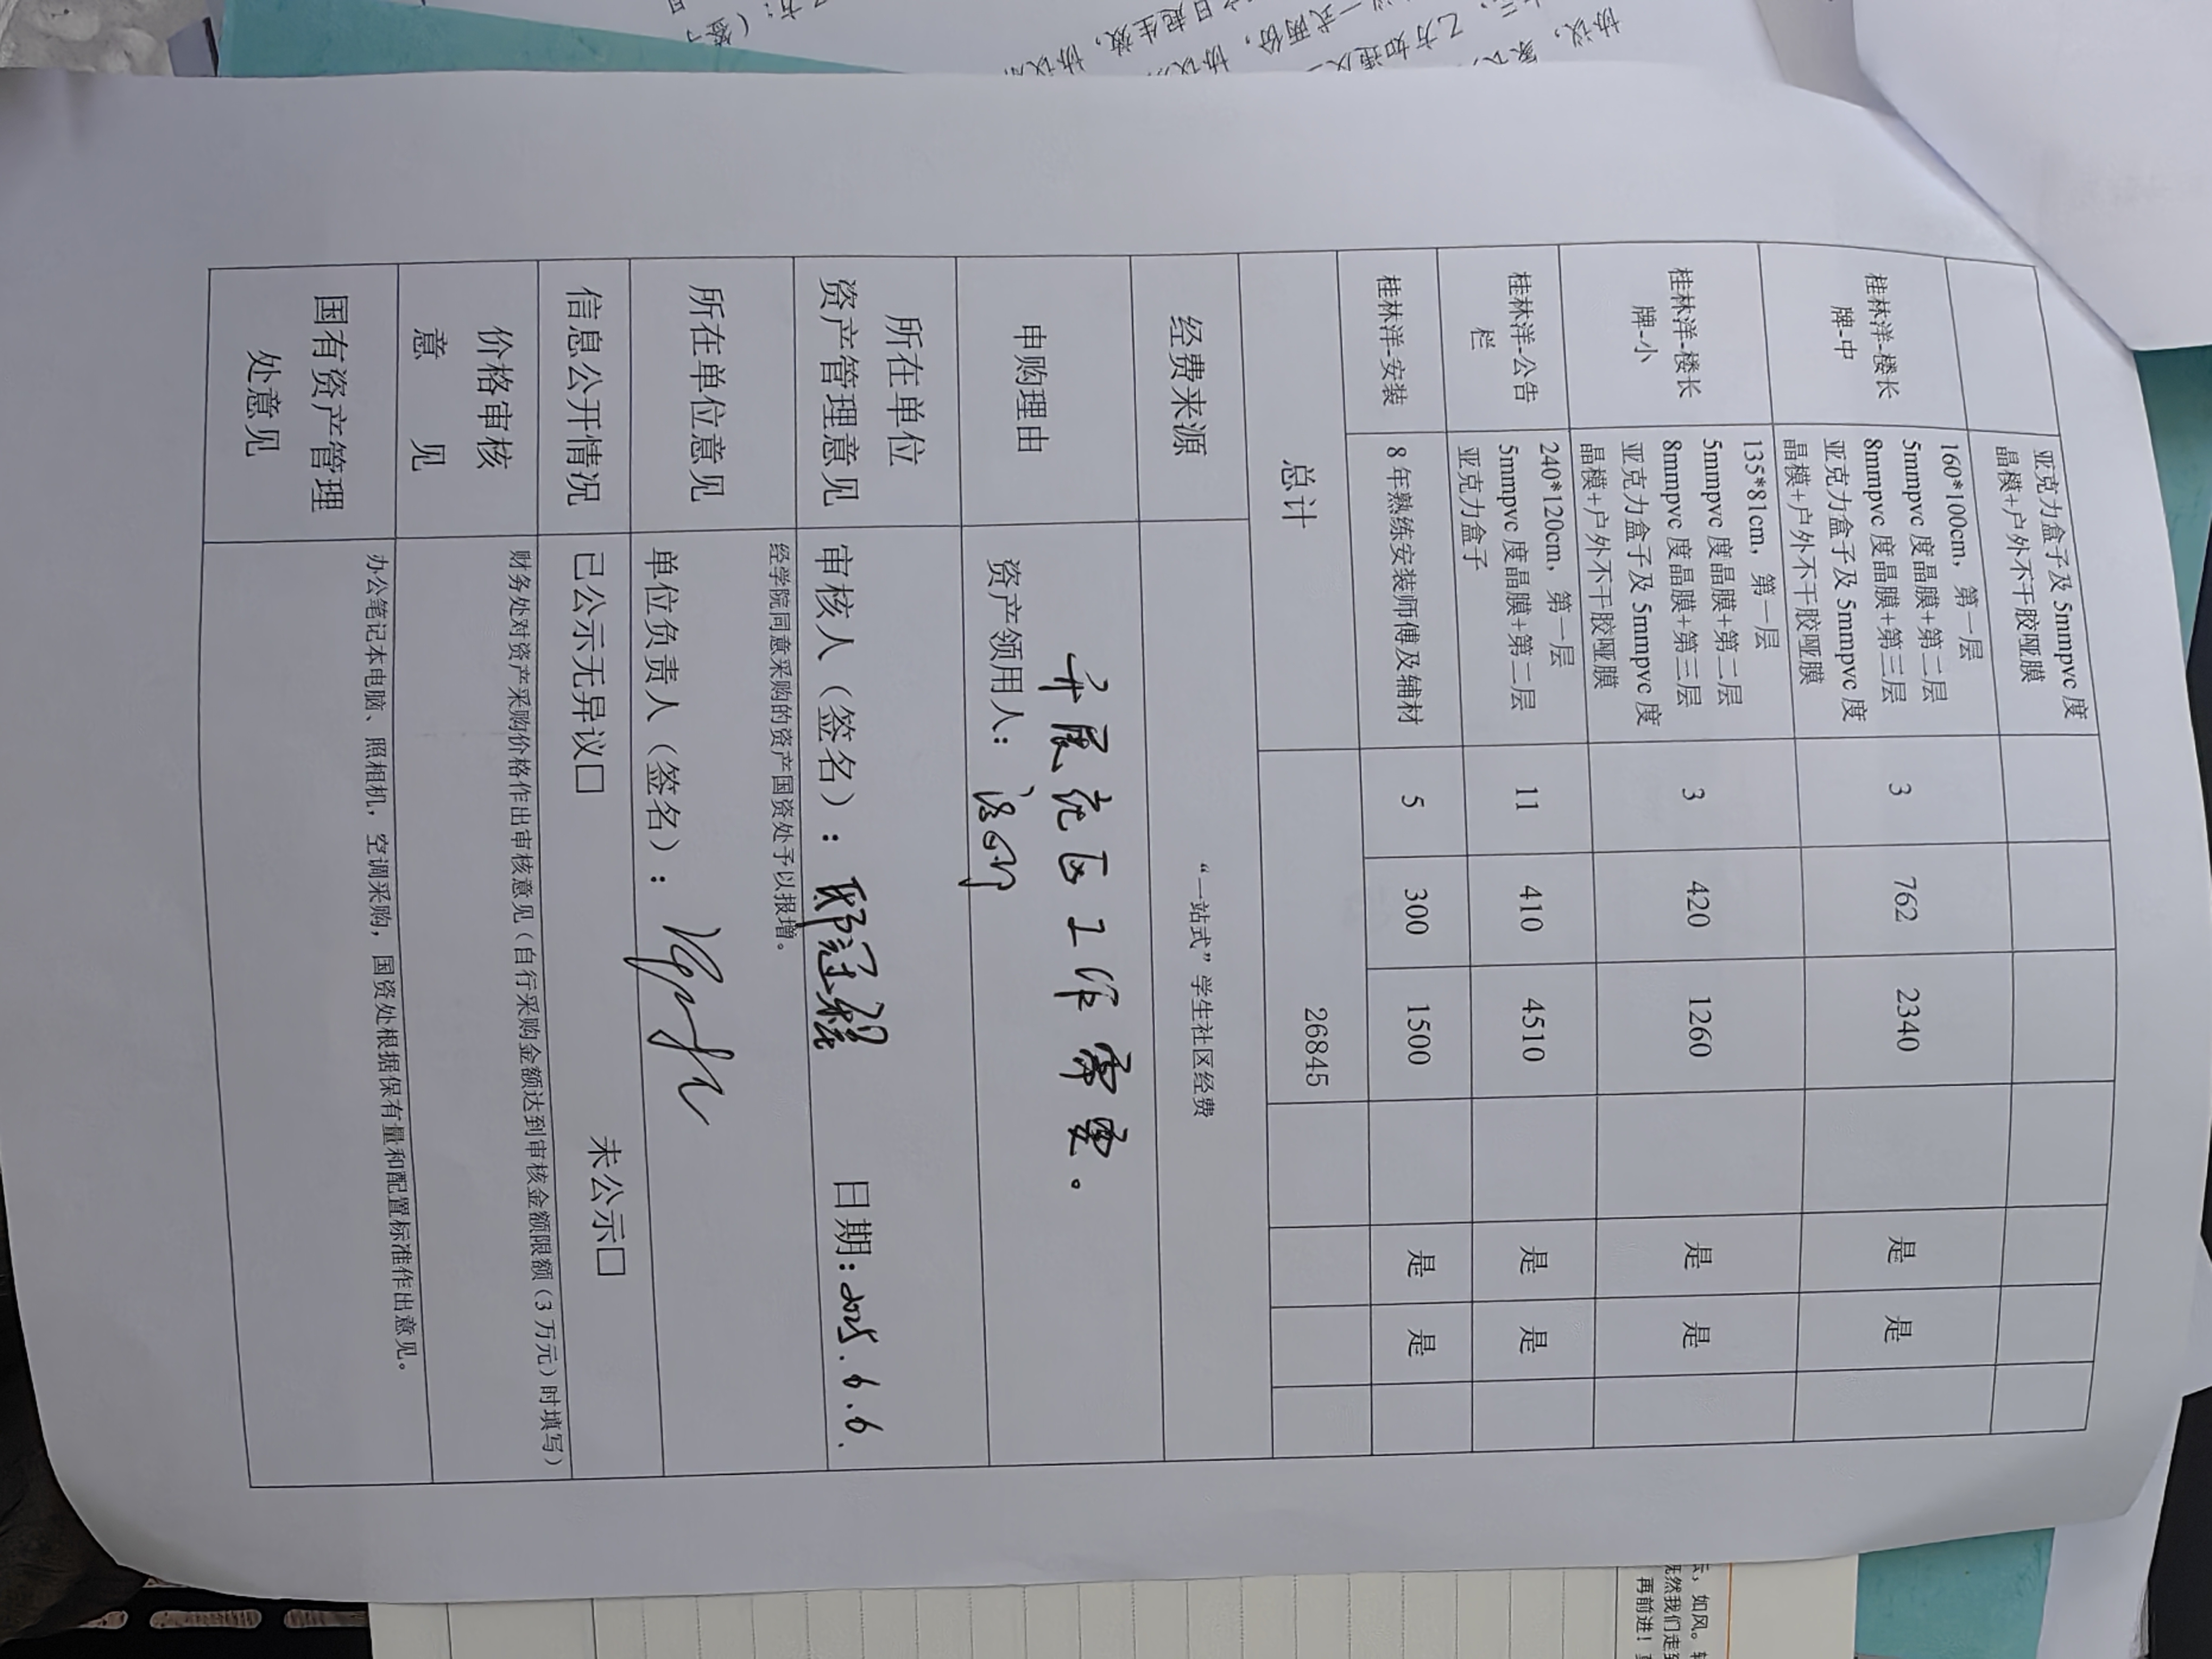 亚克力盒子及 5mmpvc 度
晶模+户外不干胶哑膜
桂林洋-楼长
牌-中
160*100cm，第一层
5mmpvc 度晶膜+第二层
8mmpvc 度晶膜+第三层
亚克力盒子及 5mmpvc 度
晶模+户外不干胶哑膜
3
762
2340
是
是
桂林洋-楼长
牌-小
135*81cm，第一层
5mmpvc 度晶膜+第二层
8mmpvc 度晶膜+第三层
亚克力盒子及 5mmpvc 度
晶模+户外不干胶哑膜
3
420
1260
是
是
桂林洋-公告
栏
240*120cm，第一层
5mmpvc 度晶膜+第二层
亚克力盒子
11
410
4510
是
是
桂林洋-安装
8 年熟练安装师傅及辅材
5
300
1500
是
是
总计
26845
经费来源
“一站式”学生社区经费
申购理由
开展党区工作需要。
资产领用人：
所在单位
资产管理意见
审核人（签名）：
日期：2025.6.6.
经学院同意采购的资产国资处予以报增。
所在单位意见
单位负责人（签名）：
信息公开情况
已公示无异议□
未公示□
价格审核
意 见
财务处对资产采购价格作出审核意见（自行采购金额达到审核金额限额（3 万元）时填写）
国有资产管理
处意见
办公笔记本电脑、照相机，空调采购，国资处根据保有量和配置标准作出意见。
协议，
乙方如违反
议一式两份，协议
之日起生效，协议
再前进！